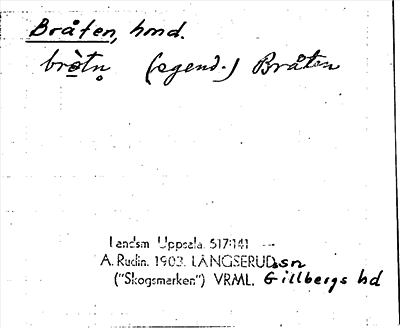 Bråten, hmd.
bròtn̥ (egend.) Bråten
Landsm. Uppsala. 517:141
A. Rudin. 1903. LÅNGSERUD sn
("Skogsmarken") VRML. Gillbergs hd